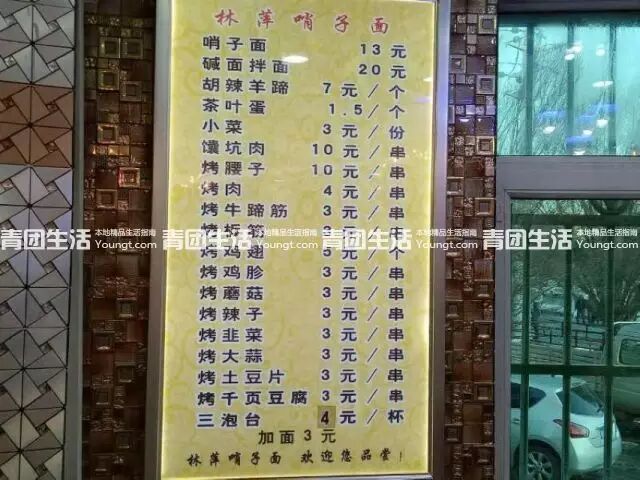 林萍哨子面
哨子面 13元
碱面拌面 20元
胡辣羊蹄 7元/个
茶叶蛋 1.5/个
小菜 3元/份
馕坑肉 10元/串
烤腰子 10元/串
烤肉 4元/串
烤牛蹄筋 3元/串
青团生活 本地精品生活指南 Youngt.com 青团生活 本地精品生活指南 Youngt.com 青团生活 本地精品生活指南 Youngt.com 青团生活 本地精品生活指南 Youngt.com
烤鸡翅 5元/个
烤鸡胗 3元/串
烤蘑菇 3元/串
烤辣子 3元/串
烤韭菜 3元/串
烤大蒜 3元/串
烤土豆片 3元/串
烤千页豆腐 3元/串
三泡台 4元/杯
加面3元
林萍哨子面 欢迎您品尝!